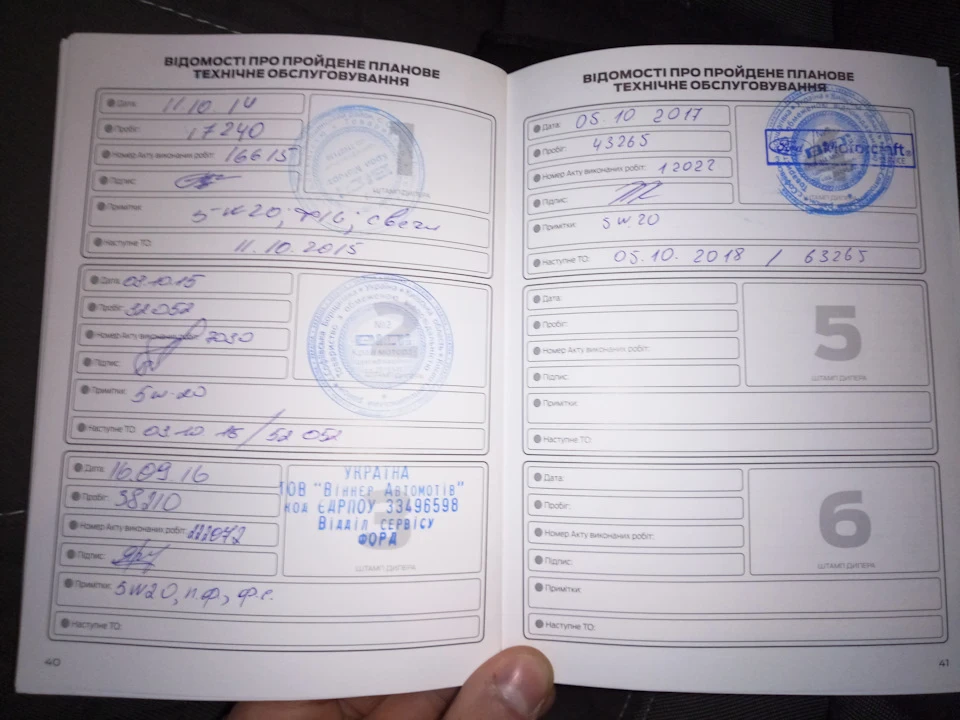 ВІДОМОСТІ ПРО ПРОЙДЕНЕ ПЛАНОВЕ
ТЕХНІЧНЕ ОБСЛУГОВУВАННЯ
Дата: 11.10.14
Пробіг: 17240
Номер Акту виконаних робіт: 16615
Підпис:
1
ШТАМП ДИЛЕРА
Примітки: 5-w20; ф/с; свечи
Наступне ТО: 11.10.2015
Дата: 03.10.15
Пробіг: 32052
Номер Акту 7030
Підпис:
2
Примітки: 5w-20
Наступне ТО: 03.10 16 / 52 052
Дата: 16.09.16
Пробіг: 38210
Номер Акту виконаних робіт:
Підпис:
3
УКРАЇНА
ТОВ "Віннер Автомотів"
код ЄДРПОУ 33496598
Відділ сервісу
ФОРД
ШТАМП ДИЛЕРА
Примітки: 5w20, п.ф., ф.с.
Наступне ТО:
40
ВІДОМОСТІ ПРО ПРОЙДЕНЕ ПЛАНОВЕ
ТЕХНІЧНЕ ОБСЛУГОВУВАННЯ
Дата: 05.10 2017
Пробіг: 43265
Номер Акту виконаних робіт: 12022
Підпис:
Ford Motorcraft®
ШТАМП ДИЛЕРА
Примітки: 5w20
Наступне ТО: 05.10.2018 / 63265
Дата:
Пробіг:
Номер Акту виконаних робіт:
Підпис:
5
ШТАМП ДИЛЕРА
Примітки:
Наступне ТО:
Дата:
Пробіг:
Номер Акту виконаних робіт:
Підпис:
6
ШТАМП ДИЛЕРА
Примітки:
Наступне ТО:
41